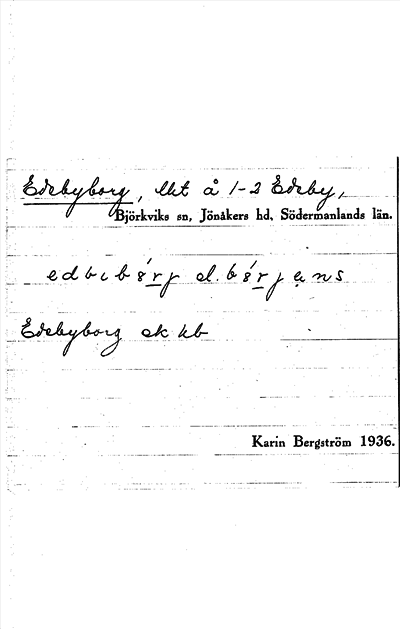 Edebyborg, lht å 1-2 Edeby,
Björkviks sn, Jönåkers hd, Södermanlands län.
edbıbórj el. bórjəns
Edebyborg ek kb
Karin Bergström 1936.